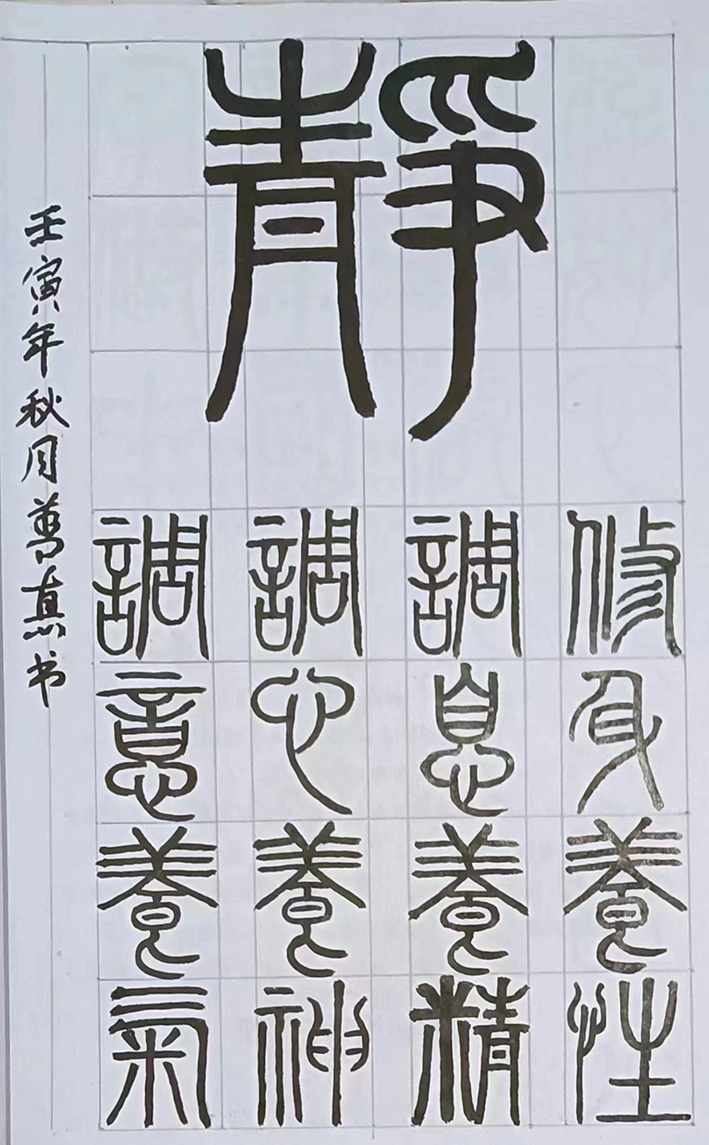 靜
修身養性
調息養精
調心養神
調意養氣
壬寅年秋月尊真书